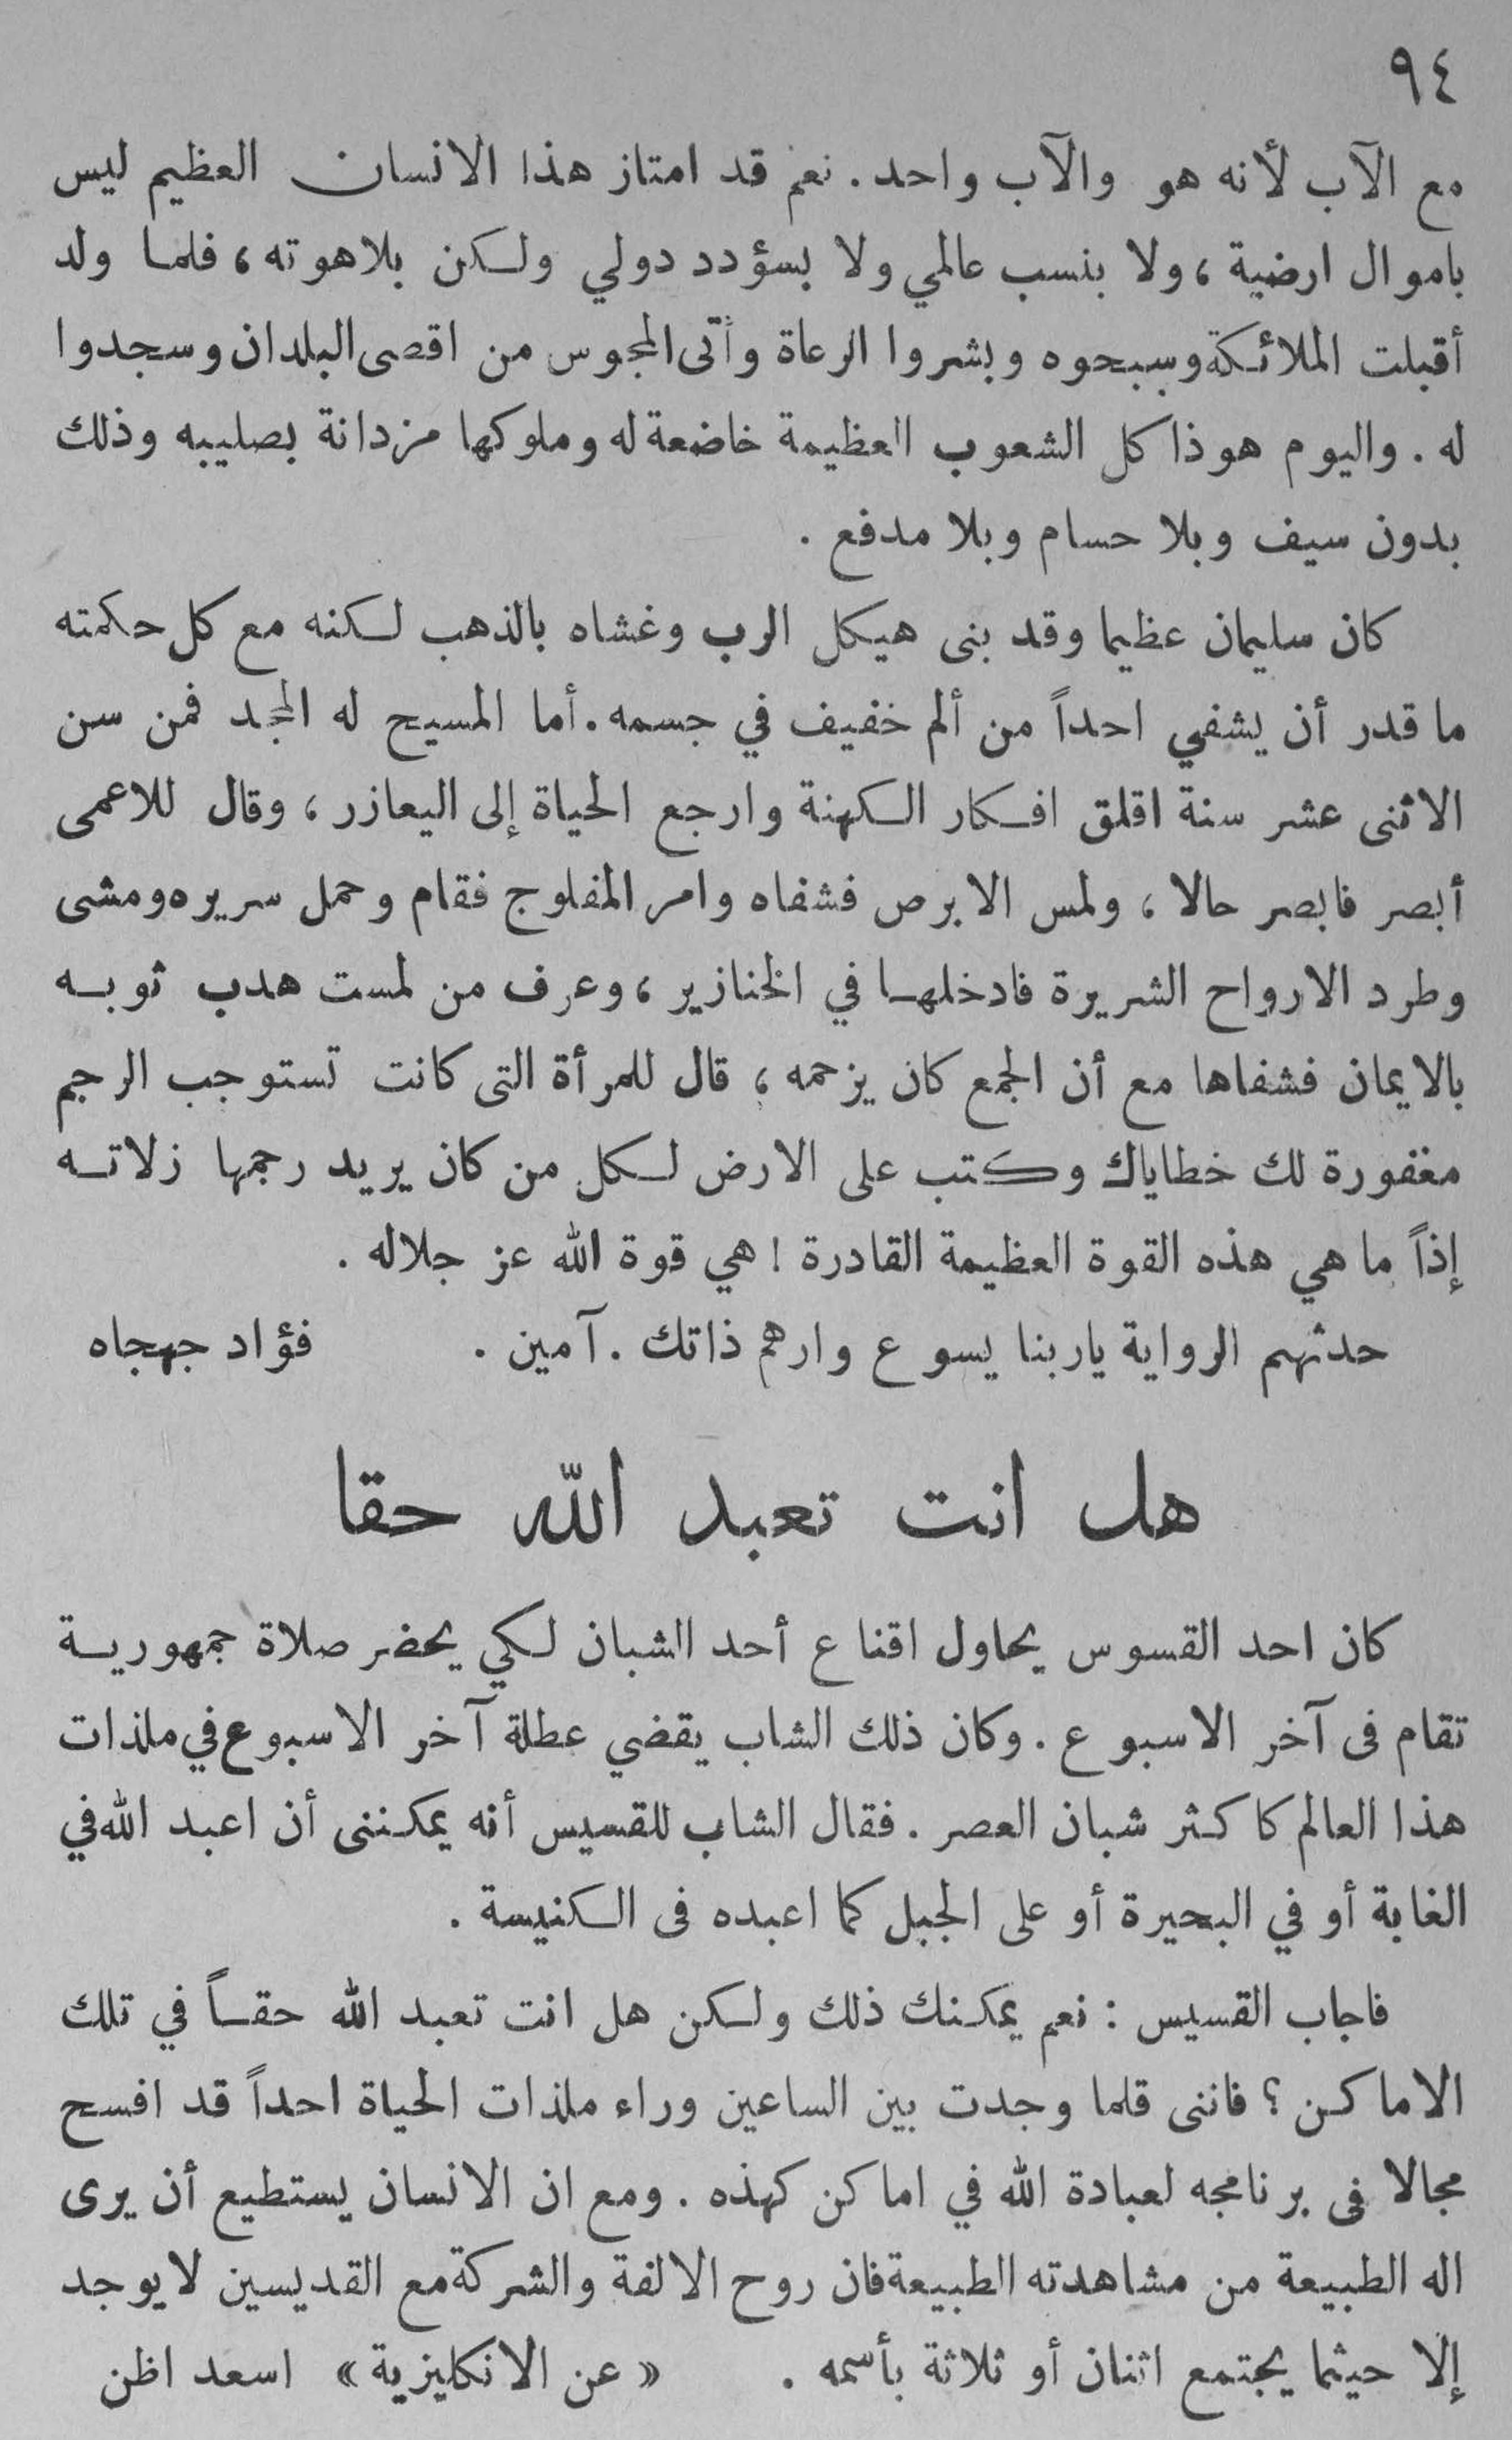 ٩٤
مع الآب لأنه هو والآب واحد. نعم قد امتاز هذا الانسان العظيم ليس
باموال ارضية، ولا بنسب عالمي ولا بسؤدد دولي ولكن بلاهوته، فلما ولد
أقبلت الملائكة وسبحوه وبشروا الرعاة وأتى المجوس من اقصى البلدان وسجدوا
له. واليوم هوذا كل الشعوب العظيمة خاضعة له وملوكها مزدانة بصليبه وذلك
بدون سيف وبلا حسام وبلا مدفع.
كان سليمان عظيما وقد بنى هيكل الرب وغشاه بالذهب لكنه مع كل حكمته
ما قدر أن يشفي احداً من ألم خفيف في جسمه. أما المسيح له المجد فمن سن
الاثنى عشر سنة اقلق افكار الكهنة وارجع الحياة إلى اليعازر، وقال للاعمى
أبصر فابصر حالا، ولمس الابرص فشفاه وامر المفلوج فقام وحمل سريره ومشى
وطرد الارواح الشريرة فادخلها في الخنازير، وعرف من لمست هدب ثوبه
بالايمان فشفاها مع أن الجمع كان يزحمه، قال للمرأة التى كانت تستوجب الرجم
مغفورة لك خطاياك وكتب على الارض لكل من كان يريد رجمها زلاته
إذاً ما هي هذه القوة العظيمة القادرة! هي قوة الله عز جلاله.
حدثهم الرواية ياربنا يسوع وارهم ذاتك. آمين. فؤاد جهجاه
هل انت تعبد الله حقا
كان احد القسوس يحاول اقناع أحد الشبان لكي يحضر صلاة جمهورية
تقام فى آخر الاسبوع. وكان ذلك الشاب يقضي عطلة آخر الاسبوع في ملذات
هذا العالم كاكثر شبان العصر. فقال الشاب للقسيس أنه يمكننى أن اعبد الله في
الغابة أو في البحيرة أو على الجبل كما اعبده فى الكنيسة.
فاجاب القسيس: نعم يمكنك ذلك ولكن هل انت تعبد الله حقاً في تلك
الاماكن؟ فاننى قلما وجدت بين الساعين وراء ملذات الحياة احداً قد افسح
مجالا فى برنامجه لعبادة الله في اماكن كهذه. ومع ان الانسان يستطيع أن يرى
اله الطبيعة من مشاهدته الطبيعة فان روح الالفة والشركة مع القديسين لايوجد
إلا حيثما يجتمع اثنان أو ثلاثة بأسمه. «عن الانكليزية» اسعد اظن